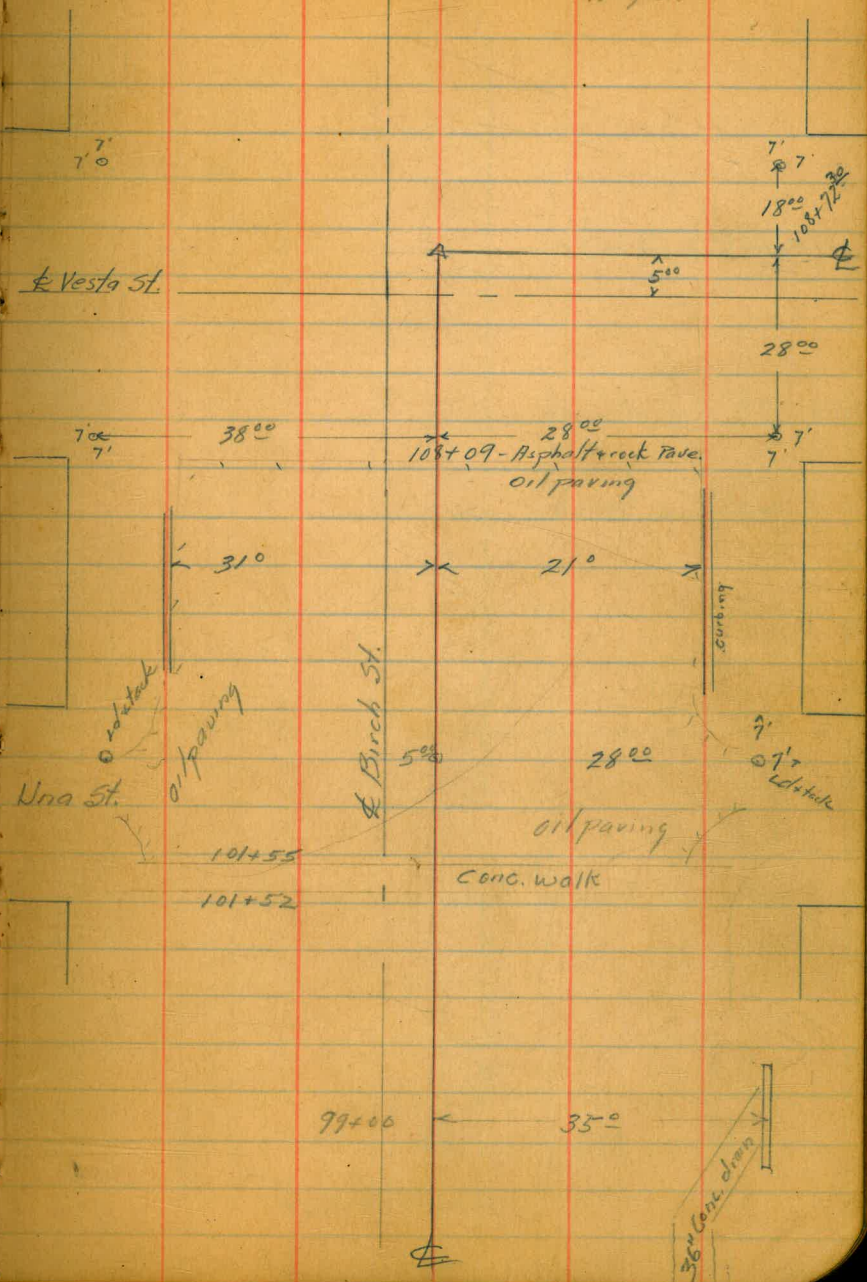 7'
7'
7'
7'
18⁰⁰
108+72³⁰
℄
℄ Vesta St.
5⁰⁰
28⁰⁰
7'
7'
38⁰⁰
28⁰⁰
7'
7'
108+09 - Asphalt & rock Pave.
oil paving
31⁰
21⁰
curbing
℄ Birch St.
Ld & tack
oil paving
5⁰⁰
28⁰⁰
7'
7'
Ld & tack
Una St.
oil paving
101+55
Conc. walk
101+52
99+00
35⁰
36" Conc. drain
℄